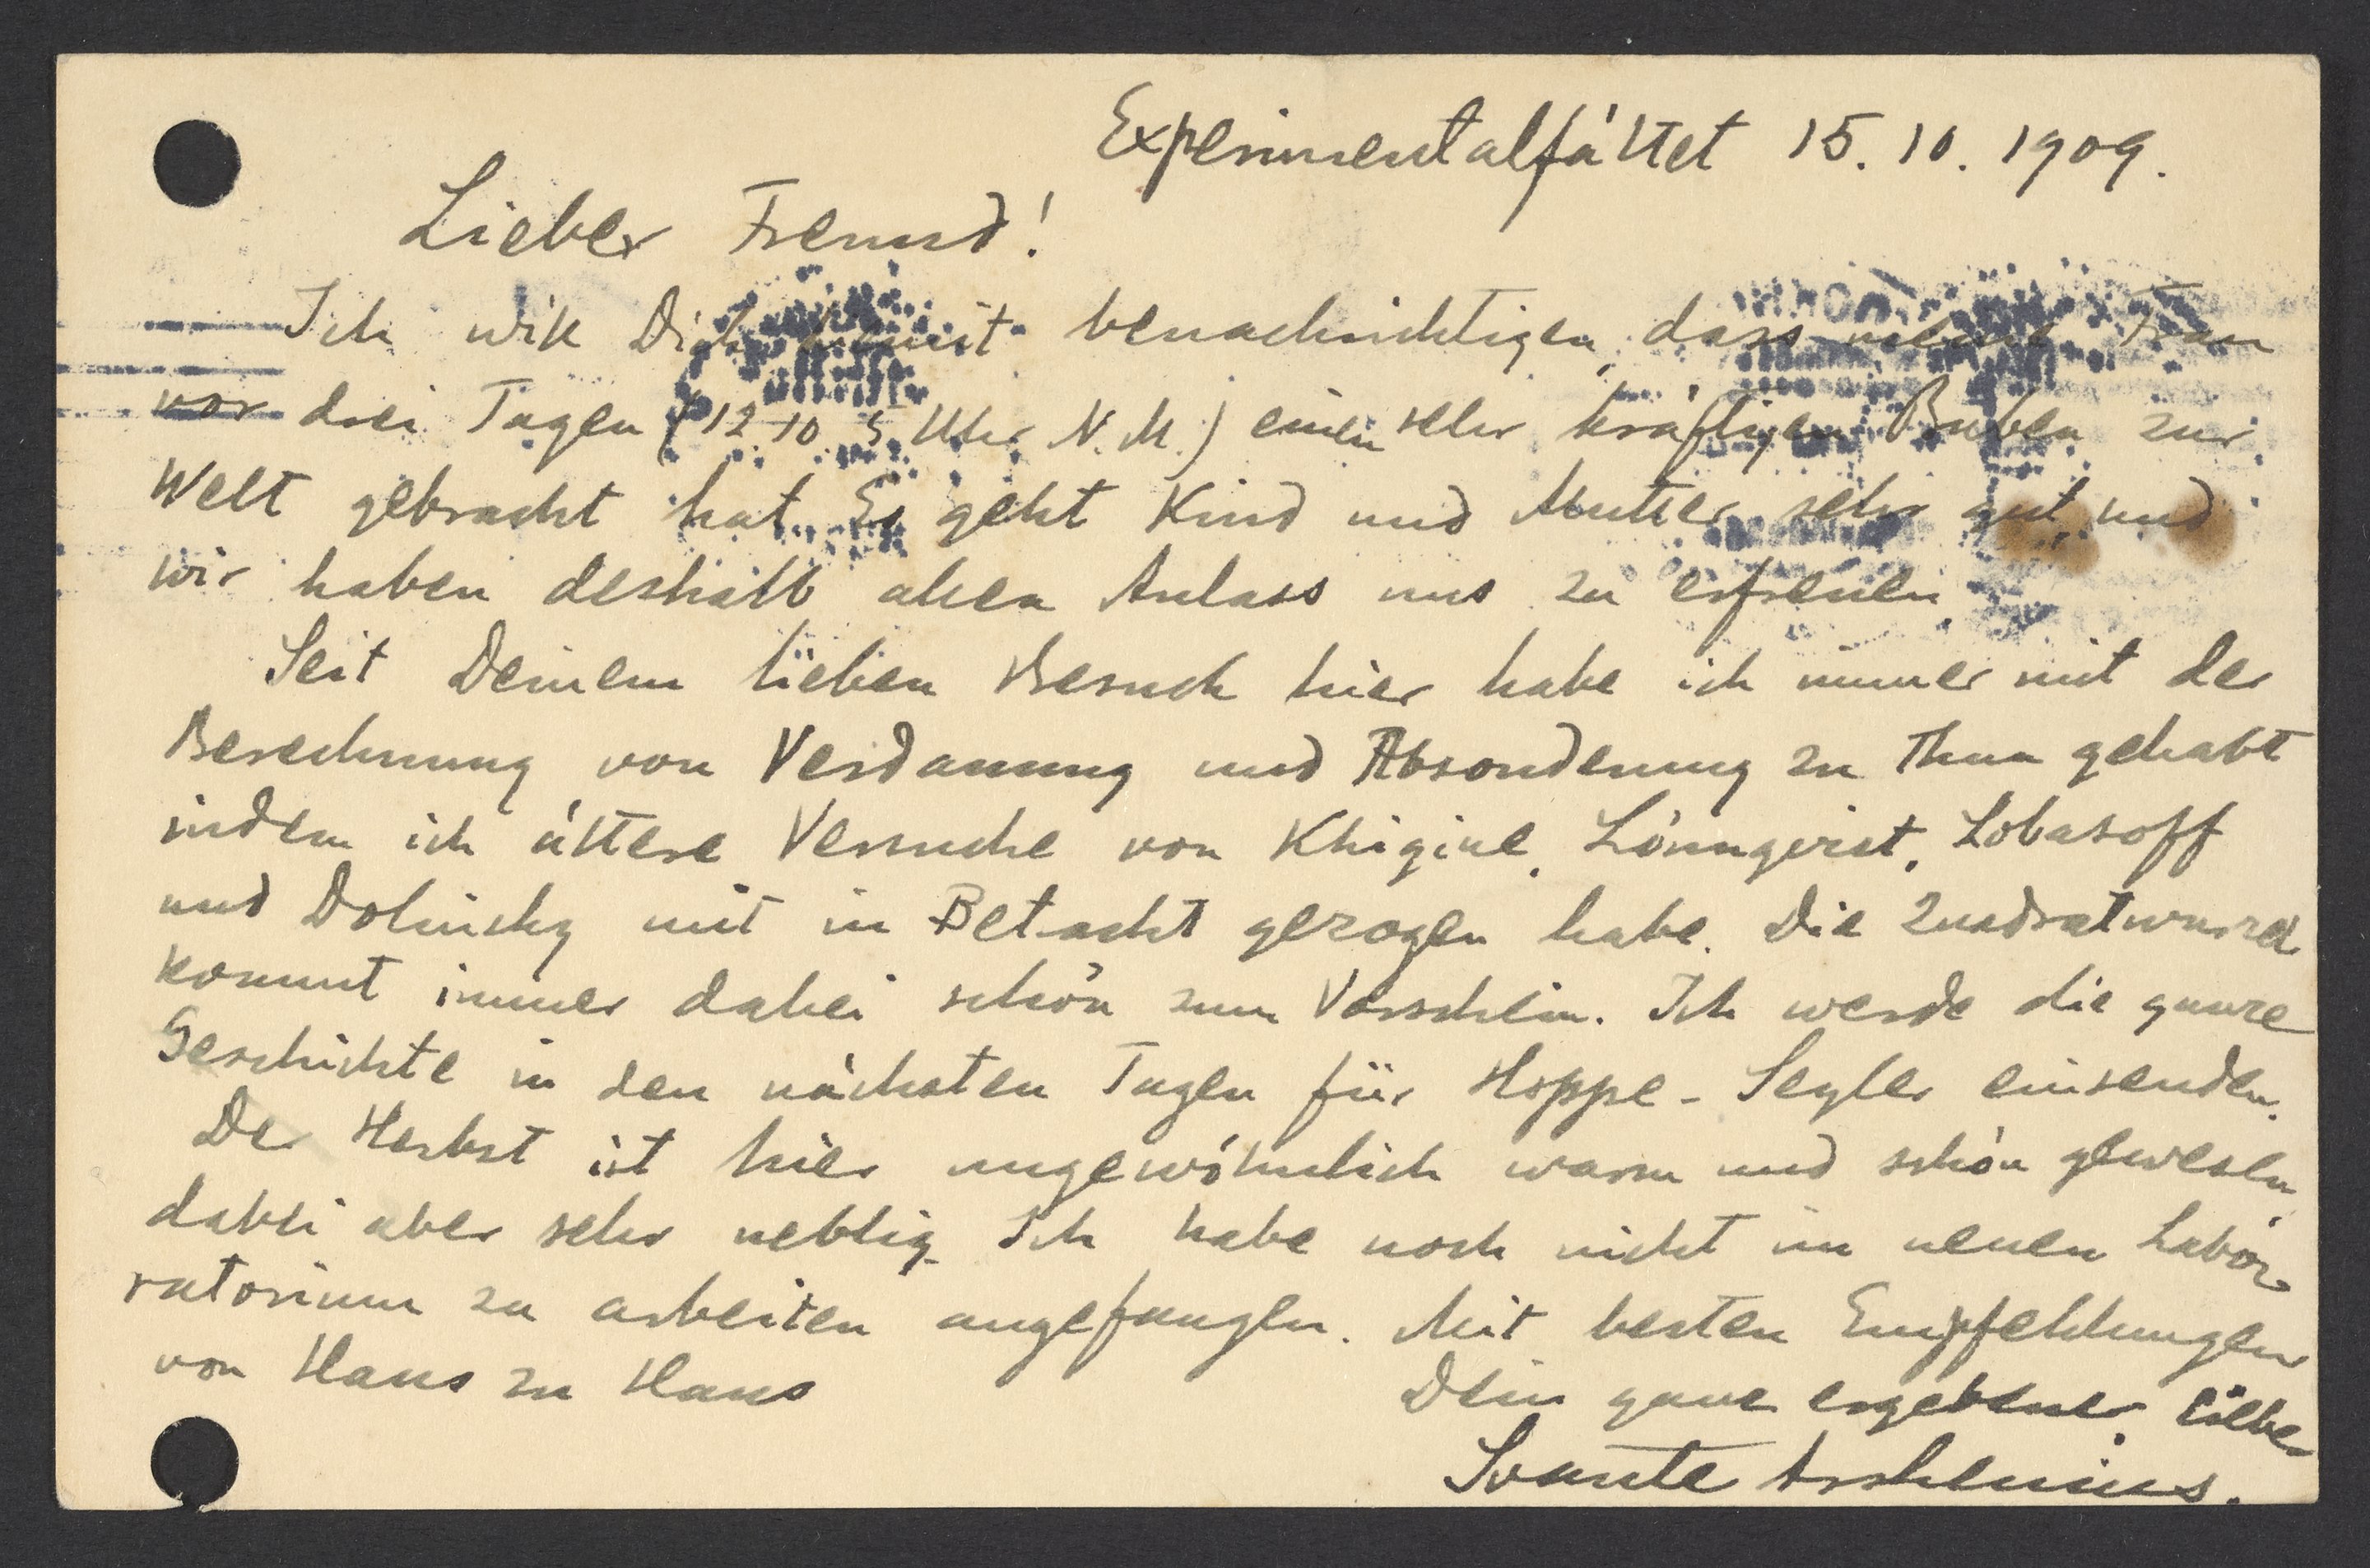 Experimentalfältet 15.10.1909.
Lieber Freund!
Ich will Dich hiemit benachrichtigen, dass meine Frau
vor drei Tagen (12.10. 5 Uhr N.M.) einen sehr kräftigen Buben zur
Welt gebracht hat. Es geht Kind und Mutter sehr gut und
wir haben deshalb allen Anlass uns zu erfreuen.
Seit Deinem lieben Besuch hier habe ich immer mit der
Berechnung von Verdauung und Absonderung zu Thun gehabt
indem ich ältere Versuche von Khigine, Lönnqvist, Lobasoff
und Dolinsky mit in Betracht gezogen habe. Die Quadratwurzel
kommt immer dabei schön zum Vorschein. Ich werde die ganze
Geschichte in den nächsten Tagen für Hoppe-Seyler einsenden.
Der Herbst ist hier ungewöhnlich warm und schön gewesen,
dabei aber sehr neblig. Ich habe noch nicht im neuen Labo-
ratorium zu arbeiten angefangen. Mit besten Empfehlungen
von Haus zu Haus
Dein ganz ergebener
Svante Arrhenius.